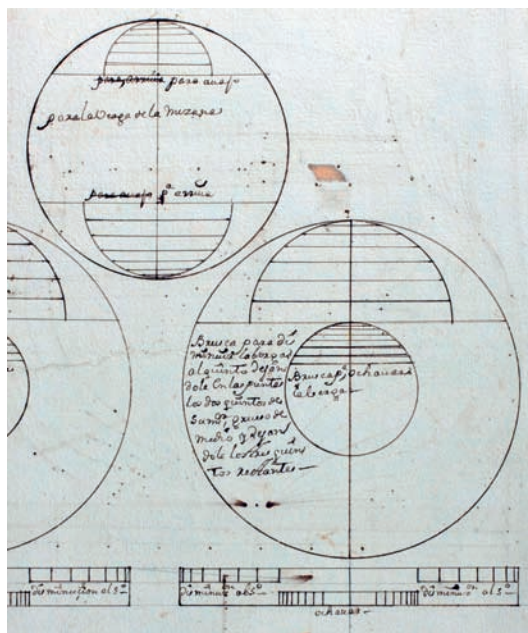 para arriua para auajo
para la berga de la mezana
para auajo pª arriua
Brusca para dis
minuir las bergas
al quinto dejan
dole en las puntas
los dos quintos de
su mor grueso de
medio y dejan
dole los tres quin
tos restantes
Brusca pª ochauar
la berga
disminuçion al 5º
disminuon al 5º
disminuon al 5º
ochauas